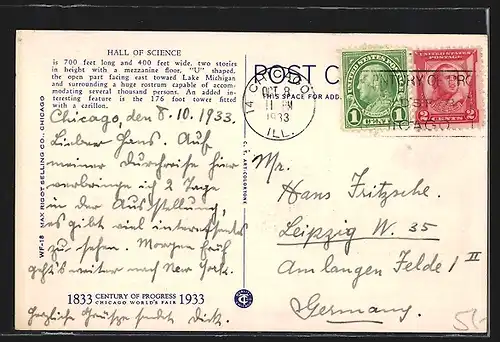 HALL OF SCIENCE
is 700 feet long and 400 feet wide, two stories
in height with a mezzanine floor. "U" shaped,
the open part facing east toward Lake Michigan
and surrounding a huge rostrum capable of accom-
modating several thousand persons. An added in-
teresting feature is the 176 foot tower fitted
with a carillon.
Chicago, den 8.10.1933.
Lieber Hans. Auf
meiner Durchreise hier
verbringe ich 2 Tage
in der Ausstellung,
es gibt viel interessantes
zu sehen. Morgen früh
geht's weiter nach New York.
1833 CENTURY OF PROGRESS 1933
CHICAGO WORLD'S FAIR
Herzliche Grüsse sendet Dick.
WF-18 MAX RIGOT SELLING CO., CHICAGO
C. T. ART-COLORTONE
POST C
THIS SPACE FOR ADD
CHICAGO
14
OCT 8
11 PM
1933
ILL.
1 1
UNITED STATES POSTAGE
2 2
CENTS
Mr.
Hans Fritzsche.
Leipzig W. 35
Am langen Felde 1 II
Germany.
5/-